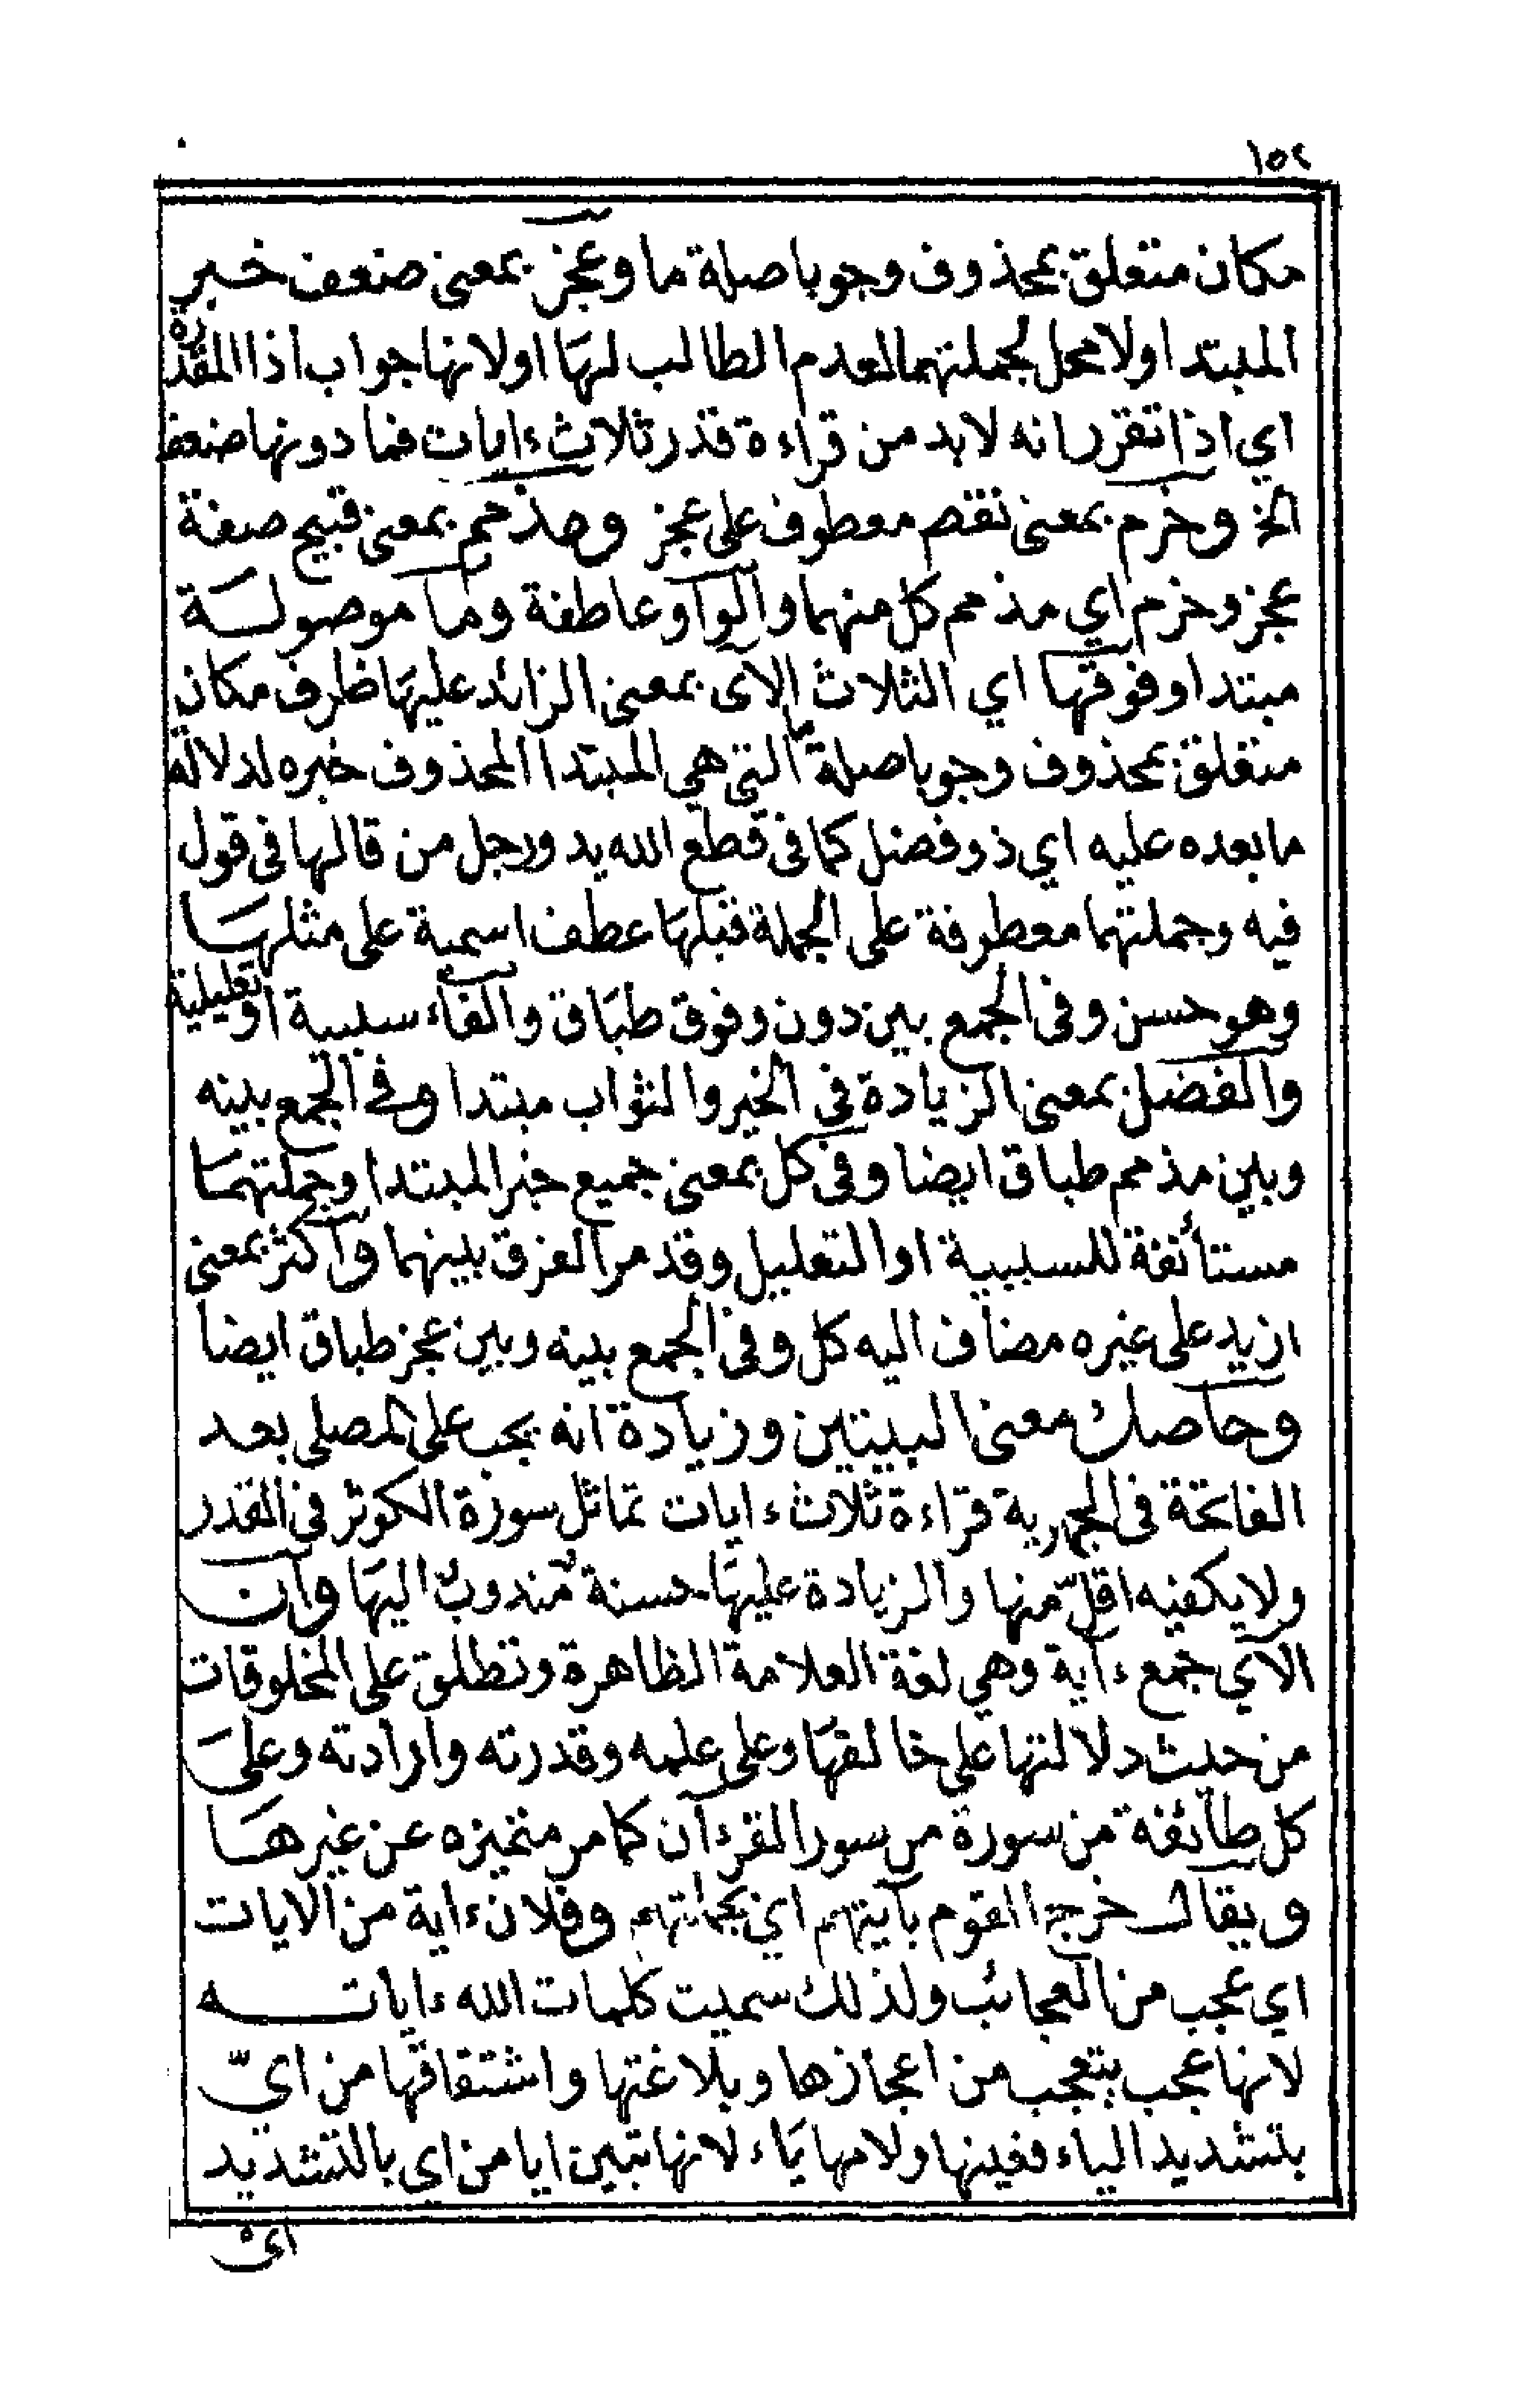 ١٥٢
مكان متعلق بمحذوف وجوبا صلة ما وعجز بمعنى ضعف خبر
المبتدا ولا محل لجملتهما لعدم الطالب لها او لانها جواب اذا المقدرة
اي اذا تقرر انه لا بد من قراءة قدر ثلاث ءايات فما دونها ضعف
الخ وخرم بمعنى نقص معطوف على عجز ومذمم بمعنى قبيح صفة
عجز وخرم اي مذمم كل منهما والواو عاطفة وما موصولة
مبتدا وفوقها اي الثلاث الآى بمعنى الزائد عليها ظرف مكان
متعلق بمحذوف وجوبا صلة ما التي هي المبتدا المحذوف خبره لدلالة
ما بعده عليه اي ذو فضل كما في قطع الله يد ورجل من قالها في قول
فيه وجملتهما معطوفة على الجملة قبلها عطف اسمية على مثلها
وهو حسن وفي الجمع بين دون وفوق طباق والفاء سببية او تعليلية
والفضل بمعنى الزيادة في الخير والثواب مبتدا وفي الجمع بينه
وبين مذمم طباق ايضا وفي كل بمعنى جميع خبر المبتدا وجملتهما
مستأنفة للسببية او التعليل وقد مر الفرق بينهما وأكثر بمعنى
ازيد على غيره مضاف اليه كل وفي الجمع بينه وبين عجز طباق ايضا
وحاصل معنى البيتين وزيادة انه يجب على المصلى بعد
الفاتحة في الجهرية قراءة ثلاث ءايات تماثل سورة الكوثر في القدر
ولا يكفيه اقل منها والزيادة عليها حسنة مندوب اليها وان
الآي جمع ءاية وهي لغة العلامة الظاهرة وتطلق على المخلوقات
من حيث دلالتها على خالقها وعلى علمه وقدرته وارادته وعلى
كل طائفة من سورة من سور القرءان كما مر متميزه عن غيرها
ويقال خرج القوم بآيتهم اي بجملتهم وفلان ءاية من الايات
اي عجب من العجائب ولذلك سميت كلمات الله ءاياته
لانها عجب يتعجب من اعجازها وبلاغتها واشتقاقها من ايّ
بتشديد الياء فعينها ولامها ياء لانها تبين ايا من اى بالتشديد